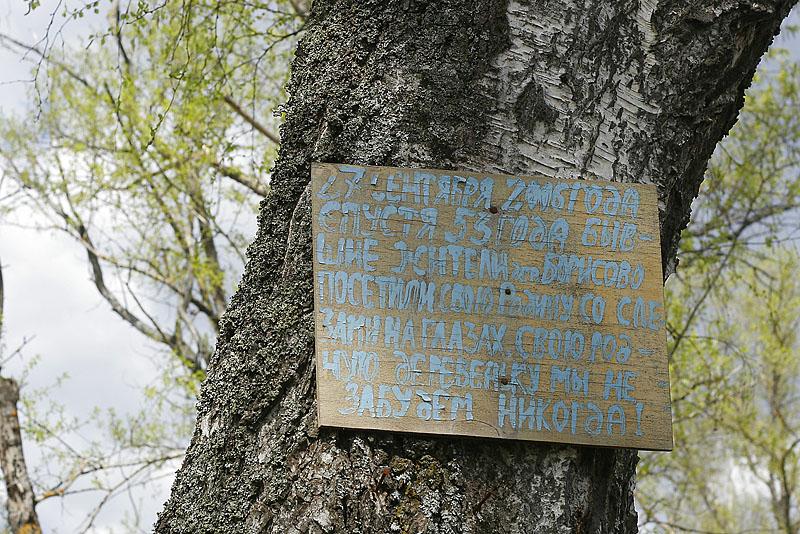 27 СЕНТЯБРЯ 2006 ГОДА
СПУСТЯ 53 ГОДА БЫВ-
ШИЕ ЖИТЕЛИ дер БОРИСОВО
ПОСЕТИЛИ СВОЮ РОДИНУ СО СЛЕ
ЗАМИ НА ГЛАЗАХ. СВОЮ РОД-
НУЮ ДЕРЕВЕНЬКУ МЫ НЕ
ЗАБУДЕМ НИКОГДА!